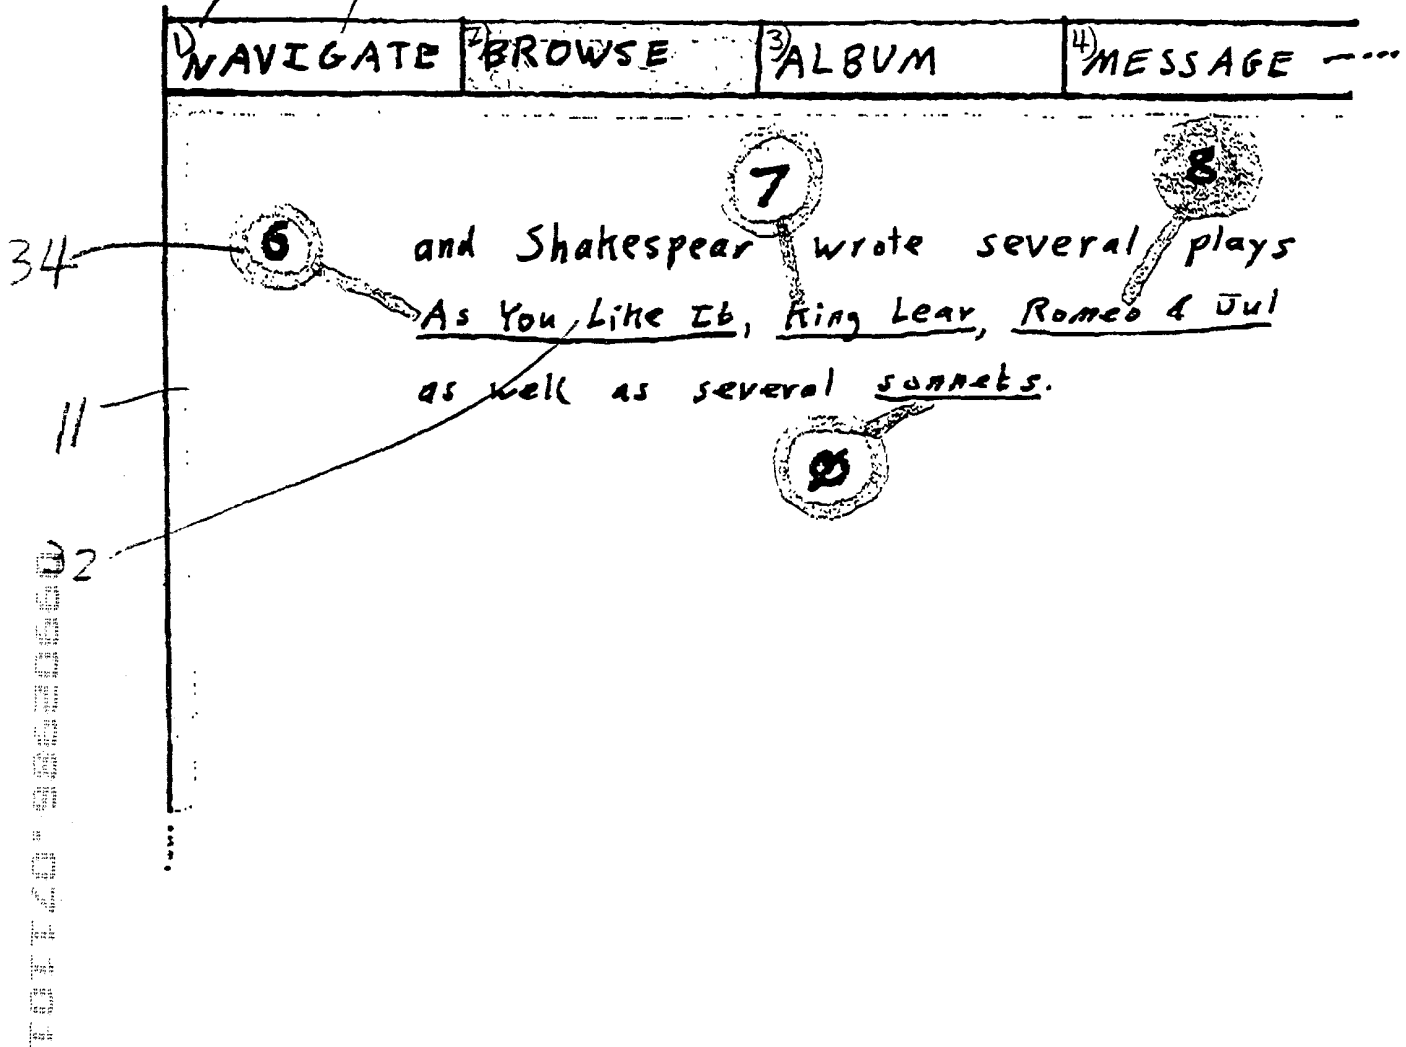 1) NAVIGATE 2) BROWSE 3) ALBUM 4) MESSAGE
7 8
34 6 and Shakespear wrote several plays
As You Like It, King Lear, Romeo & Jul
11 as well as several sonnets.
Ø
32